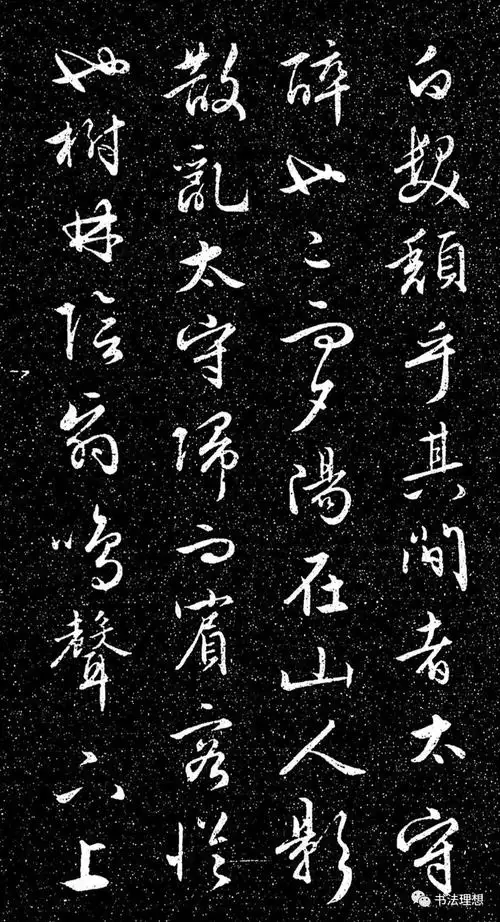 白髮頹乎其間者太守
醉也已而夕陽在山人影
散亂太守歸而賓客從
也樹林陰翳鳴聲下上
书法理想